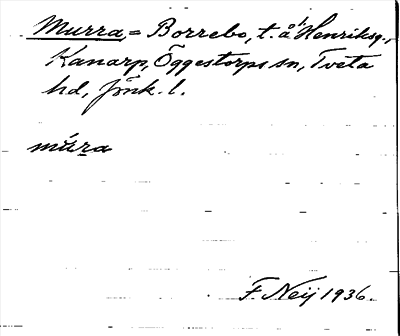 Murra = Borrebo, t. å Henriksg.,
Kanarp, Öggestorps sn, Tveta
hd, Jönk. l.
múra
F. Neij 1936.